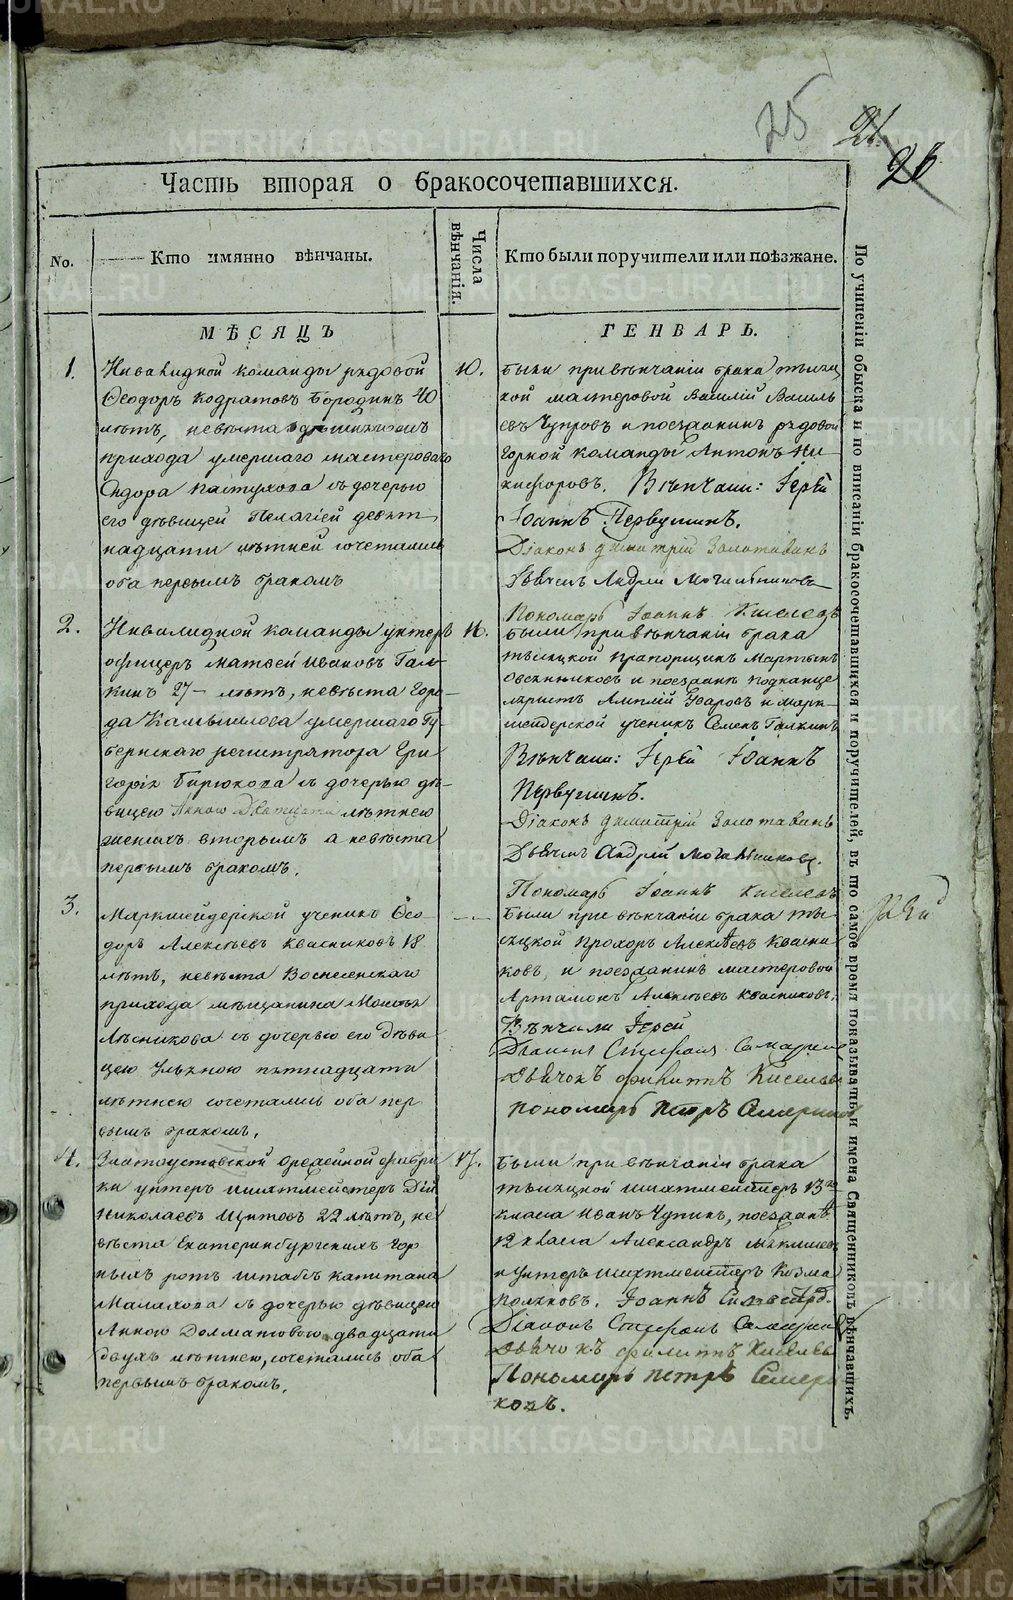 25
21.
26
Часть вторая о бракосочетавшихся.
No.
Кто имянно вѣнчаны.
Числа вѣнчанія.
Кто были поручители или поѣзжане.
МѢСЯЦЪ
ГЕНВАРЬ.
1.
Инвалидной команды рядовой
Ѳеодоръ Кодратовъ Бородинъ 40
лѣтъ, невѣста
прихода умершаго мастероваго
Сидора Пастухова съ дочерью
его дѣвицей Пелагіей девят
надцати лѣтней сочетались
оба первымъ бракомъ
10.
Были при вѣнчаніи брака тысяц
кой мастеровой Василій Василь
евъ Чупровъ и поезданинъ рядовой
Горной команды Антонъ Ни-
кифоровъ. Вѣнчали: Іерей
Іоаннъ Первушинъ.
Діаконъ Димитрій Золотавинъ
Дьячекъ Андрей Могильниковъ
Пономарь Іоаннъ Киселевъ
2.
Инвалидной команды унтеръ
офицеръ Матвей Ивановъ Гал-
кинъ 27 – лѣтъ, невѣста горо-
да Камышлова умершаго Гу-
бернскаго регистратора Гри
горія Бирюкова съ дочерью дѣ-
вицею Анною Дватцати лѣтнею
женихъ вторымъ а невѣста
первымъ бракомъ.
16.
Были при вѣнчаніи брака
тысяцкой прапорщикъ Мартынъ
Овсянниковъ и поезданѣ подканце
ляристъ Уваровъ и Марк-
шейдерской ученикъ Семенъ Галкинъ
Вѣнчали: Іерей Іоаннъ
Первушинъ.
Діаконъ Димитрій Золотавинъ
Дьячекъ Андрей Могильниковъ.
Пономарь Іоаннъ Киселевъ
3.
Маркшейдерской ученикъ Ѳео-
доръ Алексѣевъ Квасниковъ 18
лѣтъ, невѣста Вознесенскаго
прихода мѣщанина
Лѣсникова съ дочерью его Дѣви
цею Ульяною пятнадцати
лѣтнею сочетались оба пер
вымъ бракомъ.
Были при вѣнчаніи брака ты-
сяцкой Прохоръ Алексѣевъ Квасни-
ковъ, и поезданинъ мастеровой
Артамонъ Алексѣевъ Квасниковъ.
Вѣнчали Іерей
Діаконъ Стефанъ
Дьячокъ Филиппъ Киселевъ
Пономарь Петръ
4.
Златоустовской Оружейной фабри
ки унтеръ шихтмейстеръ Дій
Николаевъ 22 лѣтъ, не
вѣста Екатеринбургскихъ Гор
ныхъ ротъ штабсъ капитана
Малахова съ дочерью дѣвицею
Анною Долматовою двадцати
двухъ лѣтнею, сочетались оба
первымъ бракомъ.
17.
Были при вѣнчаніи брака
тысяцкой шихтмейстеръ 13го
класса Иванъ Чупинъ, поезданѣ
12 класа Александръ
и Унтеръ шихтмейстеръ Козма
Поляковъ. Іоаннъ
Діаконъ Стефанъ
Дьячокъ Филиппъ Киселевъ
Пономарь Петръ
ковъ.
По учиненіи обыска и по вписаніи бракосочетавшихся и поручителей, въ то самое время показывать и имена Священниковъ вѣнчавшихъ.
METRIKI.GASO-URAL.RU